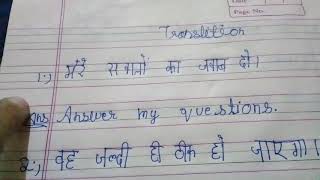 Page No.
Translition
1:) मेरे सवालों का जवाब दो।
Ans Answer my questions.
2:) वह जल्दी ही ठीक हो जाएगा।